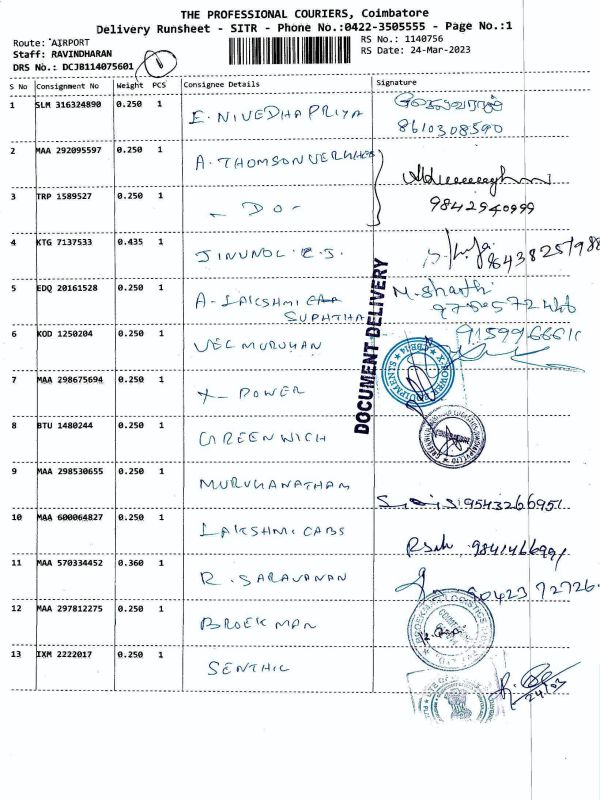 THE PROFESSIONAL COURIERS, Coimbatore
Delivery Runsheet - SITR - Phone No.:0422-3505555 - Page No.:1
Route: AIRPORT
RS No.: 1140756
Staff: RAVINDHARAN
RS Date: 24-Mar-2023
DRS No.: DCJB114075601
S No Consignment No Weight PCS Consignee Details Signature
1 SLM 316324890 0.250 1 E. NIVEDHA PRIYA
8610308590
2 MAA 292095597 0.250 1 A. THOMSON
3 TRP 1589527 0.250 1 - DO -
9842940999
4 KTG 7137533 0.435 1
5 EDQ 20161528 0.250 1 A. LAKSHMI
M. Sharthi
6 KOD 1250204 0.250 1 VEL MURUHAN
DOCUMENT DELIVERY
7 MAA 298675694 0.250 1 X- POWER
8 BTU 1480244 0.250 1 GREENWICH
9 MAA 298530655 0.250 1 MURUHANATHAM
9543266951
10 MAA 600064827 0.250 1 LAKSHMI CABS
11 MAA 570334452 0.360 1 R. SARAVANAN
12 MAA 297812275 0.250 1 BROEKMAN
13 IXM 2222017 0.250 1 SENTHIL
24/03